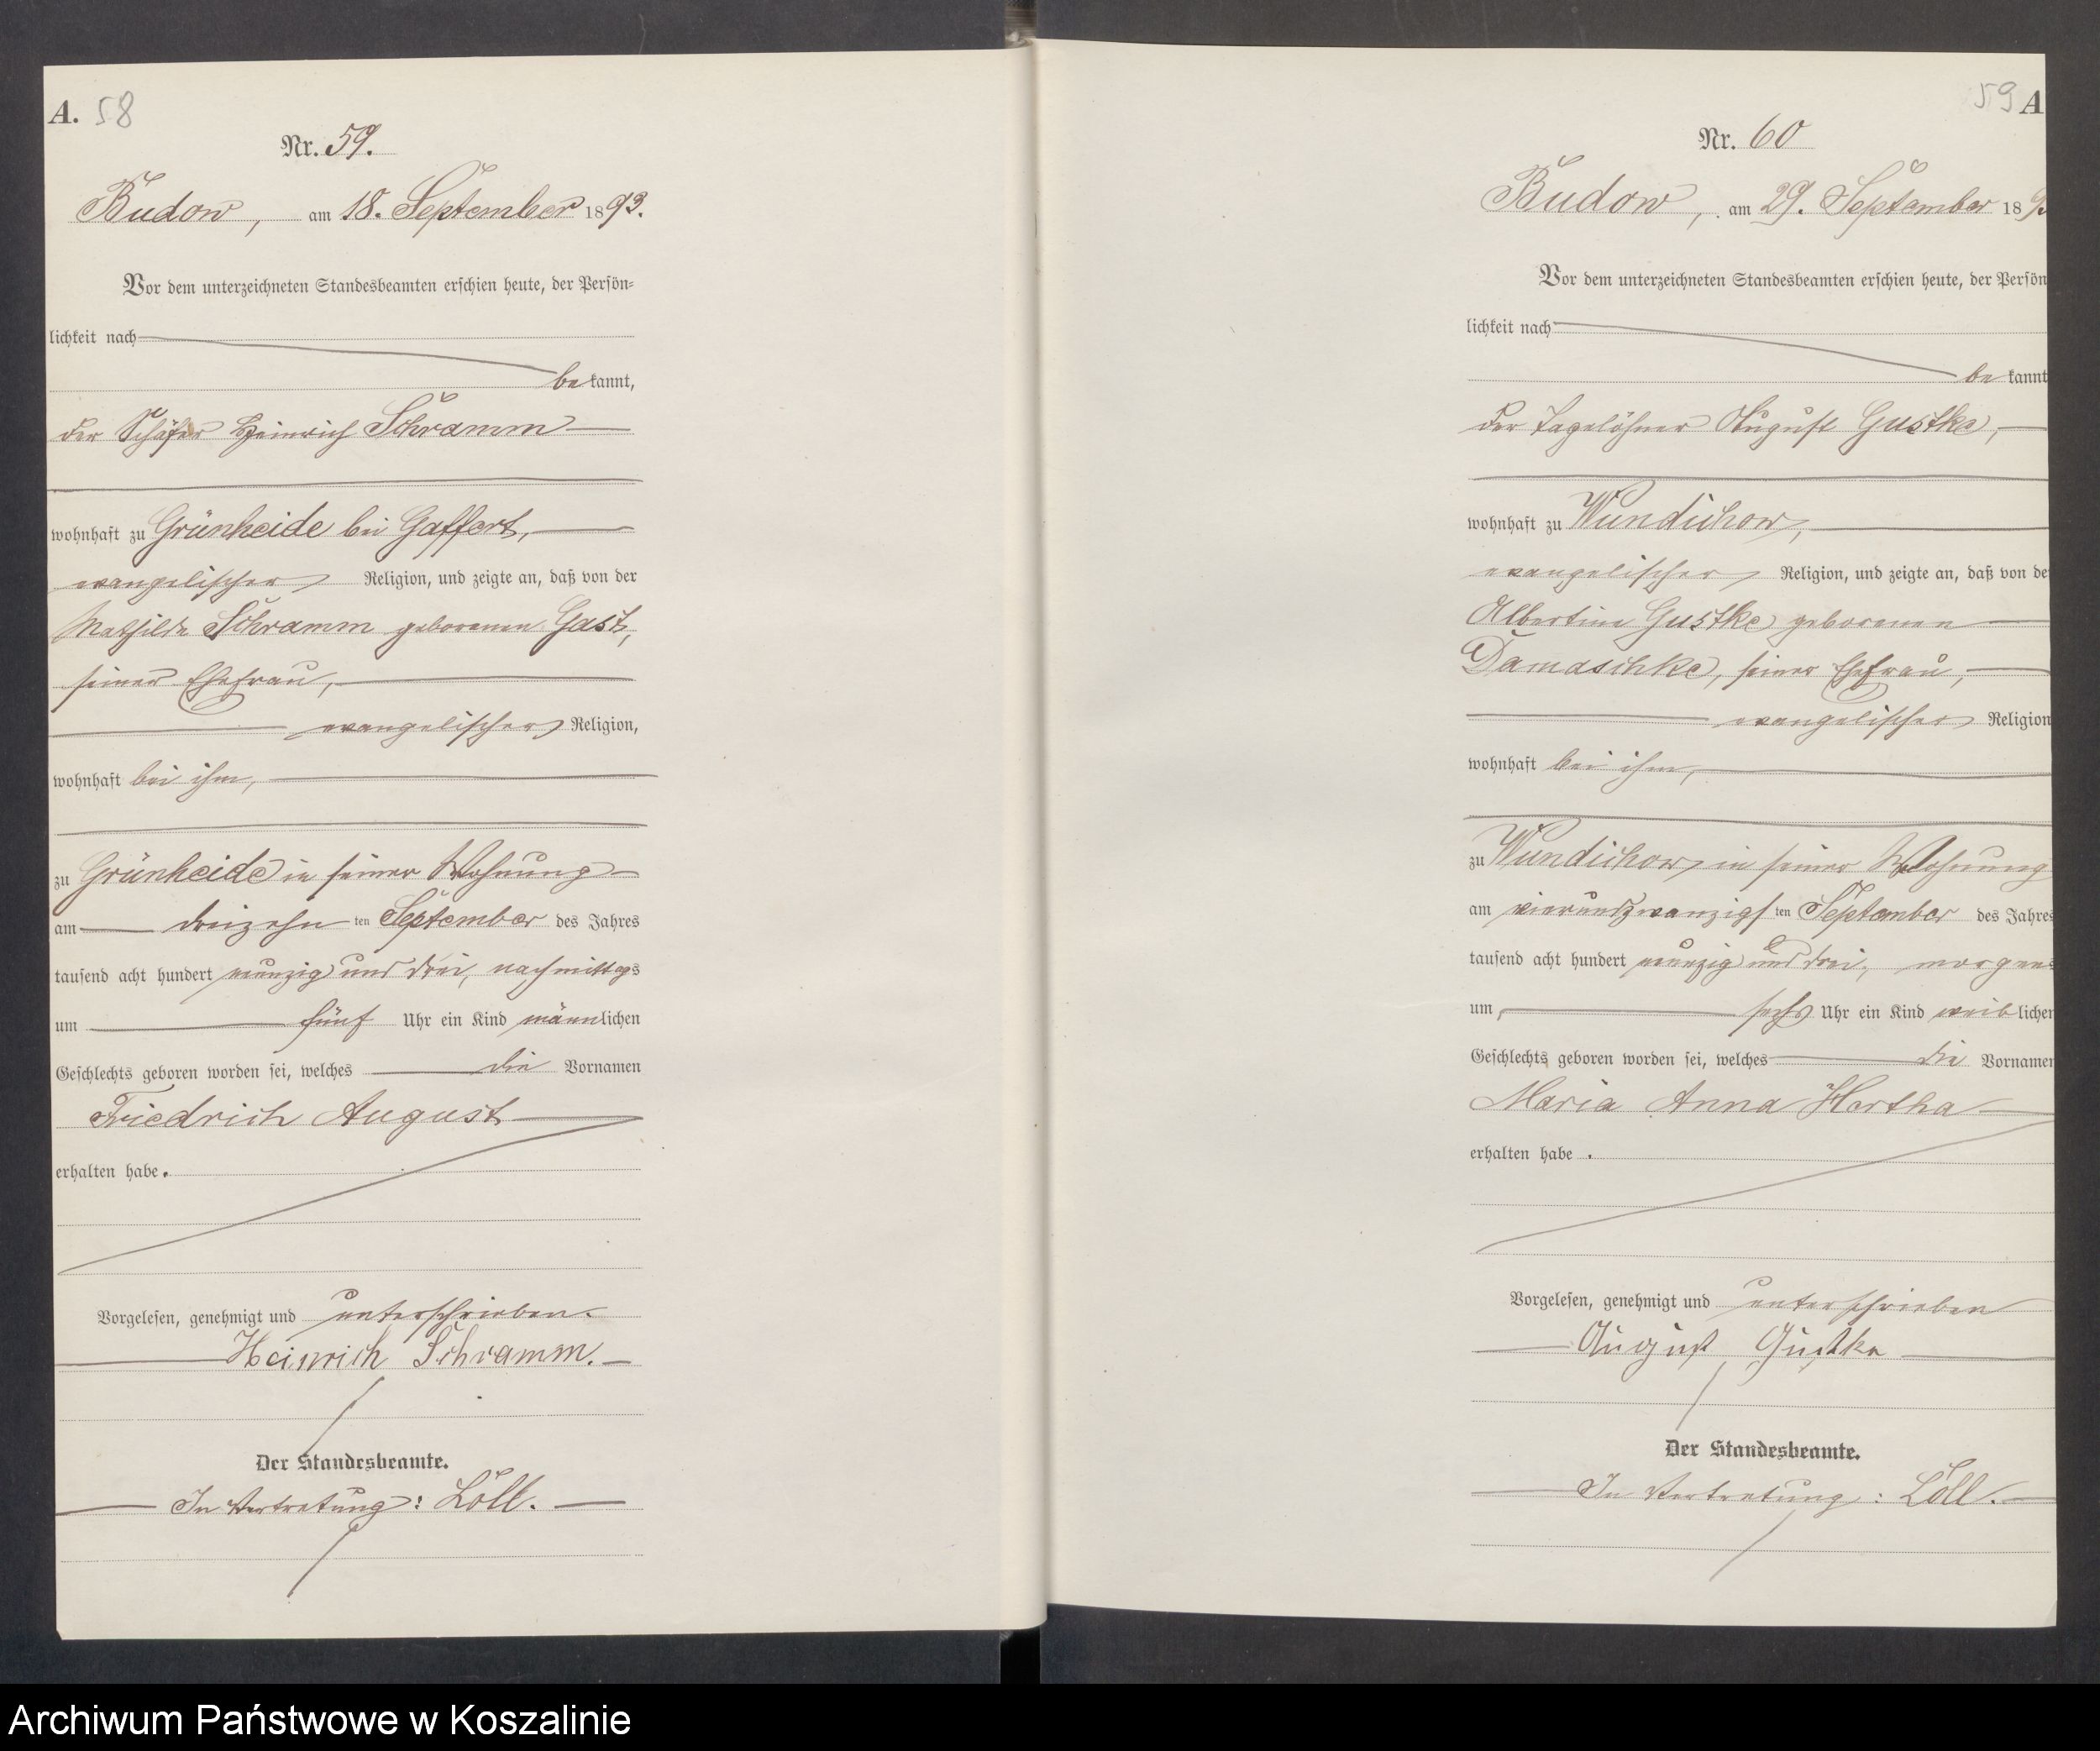 A. 58
Nr. 59.
Budow, am 18. September 1893.
Vor dem unterzeichneten Standesbeamten erschien heute, der Persön-
lichkeit nach
bekannt,
der Schäfer Heinrich Schramm
wohnhaft zu Grünheide bei Gaffert,
evangelischer Religion, und zeigte an, daß von der
Mathilde Schramm geborenen Gast,
seiner Ehefrau,
evangelischer Religion,
wohnhaft bei ihm,
zu Grünheide in seiner Wohnung
am dreizehnten September des Jahres
tausend acht hundert neunzig und drei, nachmittags
um fünf Uhr ein Kind männlichen
Geschlechts geboren worden sei, welches die Vornamen
Friedrich August
erhalten habe.
Vorgelesen, genehmigt und unterschrieben.
Heinrich Schramm.
Der Standesbeamte.
In Vertretung: Löll.
59 A
Nr. 60
Budow, am 29. September 189
Vor dem unterzeichneten Standesbeamten erschien heute, der Persön
lichkeit nach
bekannt
der Tagelöhner August Gustke,
wohnhaft zu Wundichow,
evangelischer Religion, und zeigte an, daß von de
Albertine Gustke geborenen
Damaschke, seiner Ehefrau,
evangelischer Religion
wohnhaft bei ihm,
zu Wundichow in seiner Wohnung
am vierundzwanzigsten September des Jahres
tausend acht hundert neunzig und drei, morgens
um sechs Uhr ein Kind weiblichen
Geschlechts geboren worden sei, welches die Vornamen
Maria Anna Hertha
erhalten habe.
Vorgelesen, genehmigt und unterschrieben
August Gustke
Der Standesbeamte.
In Vertretung: Löll.
Archiwum Państwowe w Koszalinie